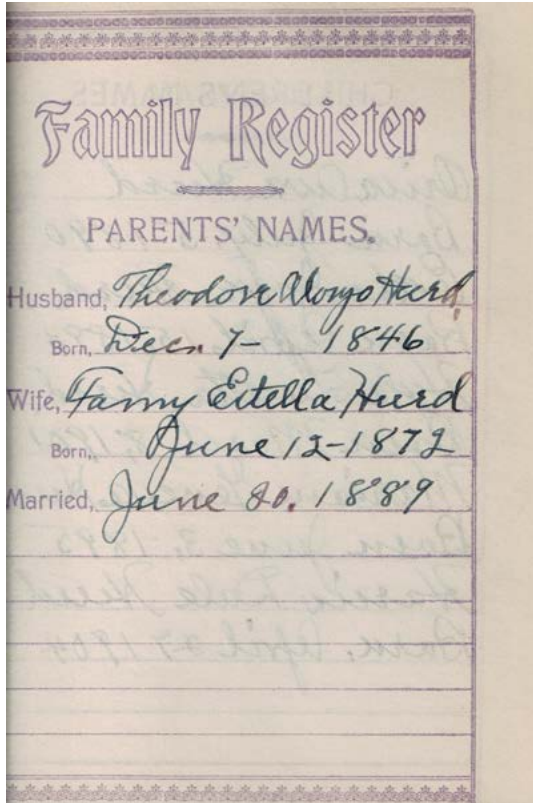 Family Register
PARENTS' NAMES.
Husband, Theodore Alonzo Hurd
Born, Dec. 7- 1846
Wife, Fanny Estella Hurd
Born, June 12-1872
Married, June 20. 1889